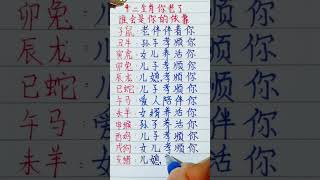 十二生肖你老了
谁会是你的依靠
子鼠:老伴伴着你
丑牛:孙子孝顺你
寅虎:女儿养活你
卯兔:儿子孝顺你
辰龙:儿媳孝顺你
巳蛇:儿子孝顺你
午马:爱人陪伴你
未羊:女婿养活你
申猴:孙子养活你
酉鸡:儿子孝顺你
戌狗:女儿孝顺你
亥猪:儿媳
卯兔
辰龙
巳蛇
午马
未羊
顺你
顺你
顺你
伴你
活你